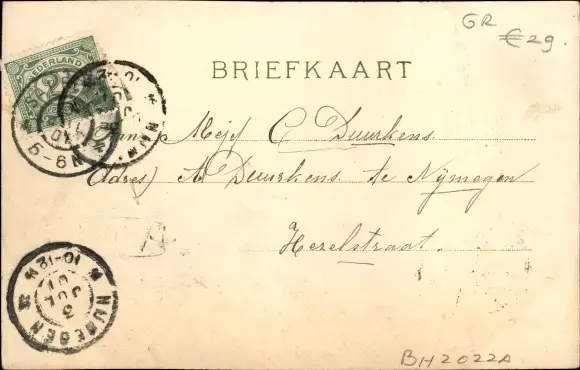 GR
€29.
NEDERLAND
BRIEFKAART
Mejf C Duurkens.
Adres) A. Duurkens te Nijmegen
Hezelstraat.
5-6 N
10-12
NIJMEGEN
10-12
3
JUL
01
BH2022A